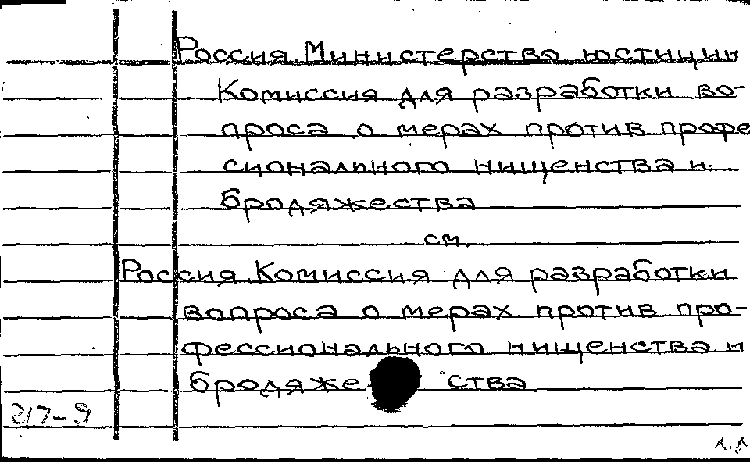 Россия. Министерство юстиции
Комиссия для разработки во-
проса о мерах против профе
сионального нищенства и
бродяжества
см.
Россия Комиссия для разработки
вопроса о мерах против про-
фессионального нищенства и
бродяже ства
217-9